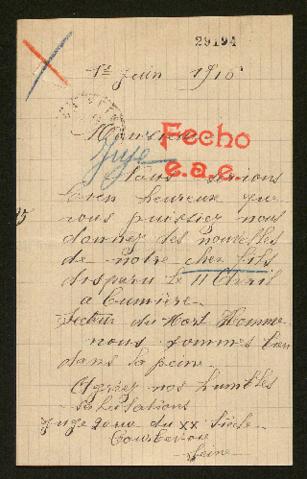 29194
1er Juin 1916
Monsieur
Fecho
Juge
e.a.e.
Nous serions
bien heureux que
vous puissiez nous
donner des nouvelles
de notre cher fils
disparu le 11 Avril
a Cumière
secteur du Mort Homme
nous sommes bien
dans la peine
Agréez nos humbles
salutations
Juge 20 rue du XX siècle
Courbevoie
Seine